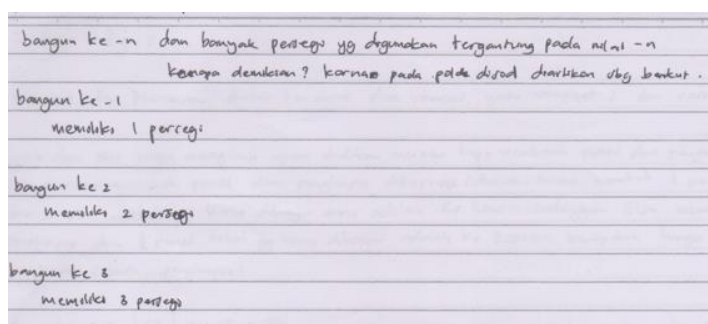 bangun ke-n dan banyak persegi yg digunakan tergantung pada nilai-n
kenapa demikian? karna pada pola disoal diartikan sbg berikut.
bangun ke-1
memiliki 1 persegi
bangun ke 2
memiliki 2 persegi
bangun ke 3
memiliki 3 persegi